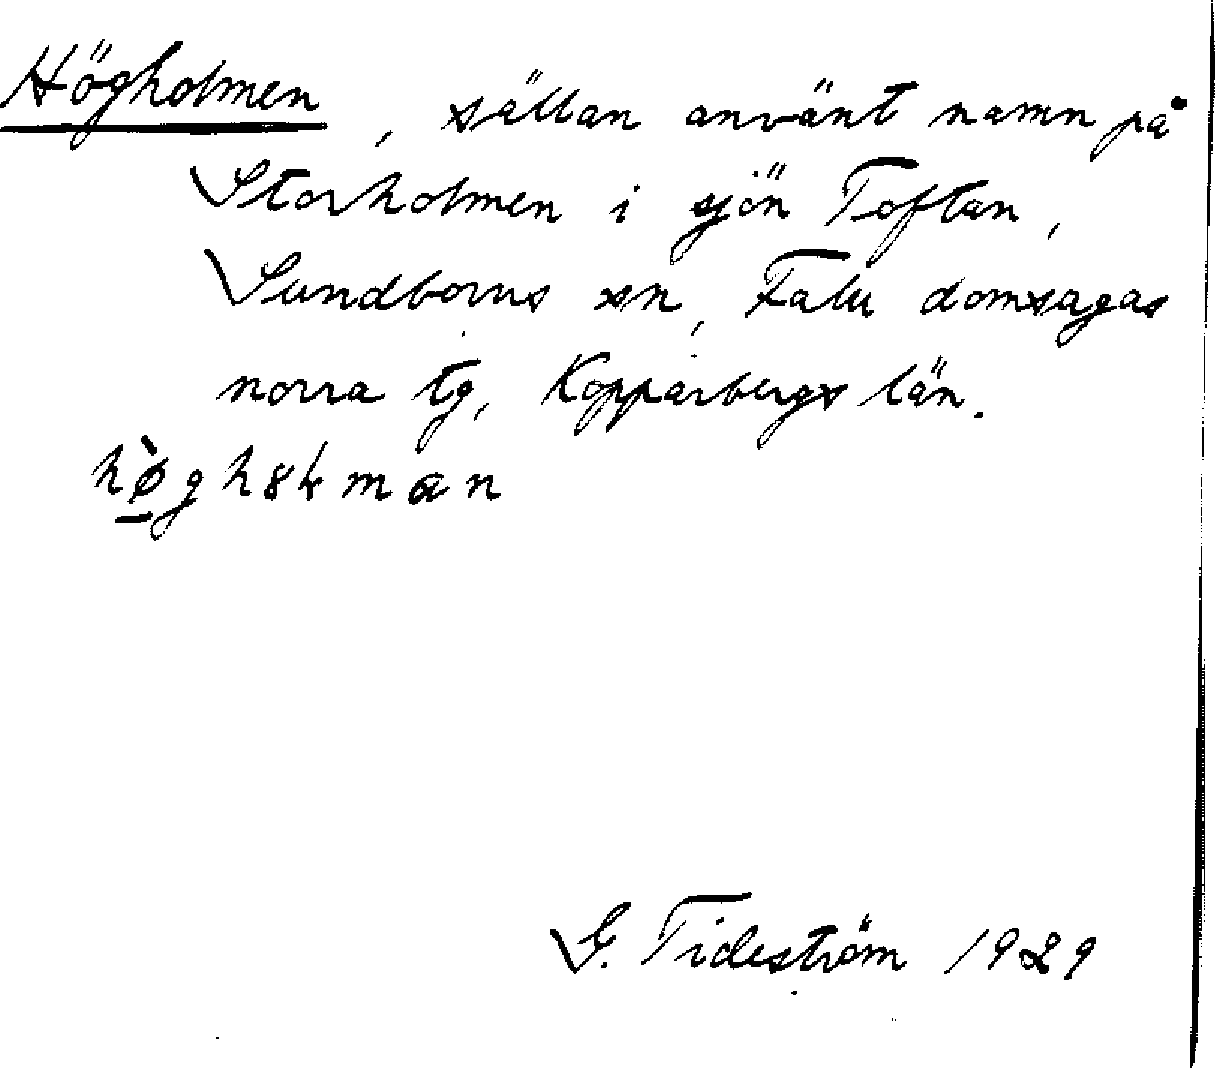 Högholmen, sällan använt namn på
Storholmen i sjön Toftan,
Sundborns sn, Falu domsagas
norra tg, Kopparbergs län.
hø̀gh8ɫman
G. Tideström 1929